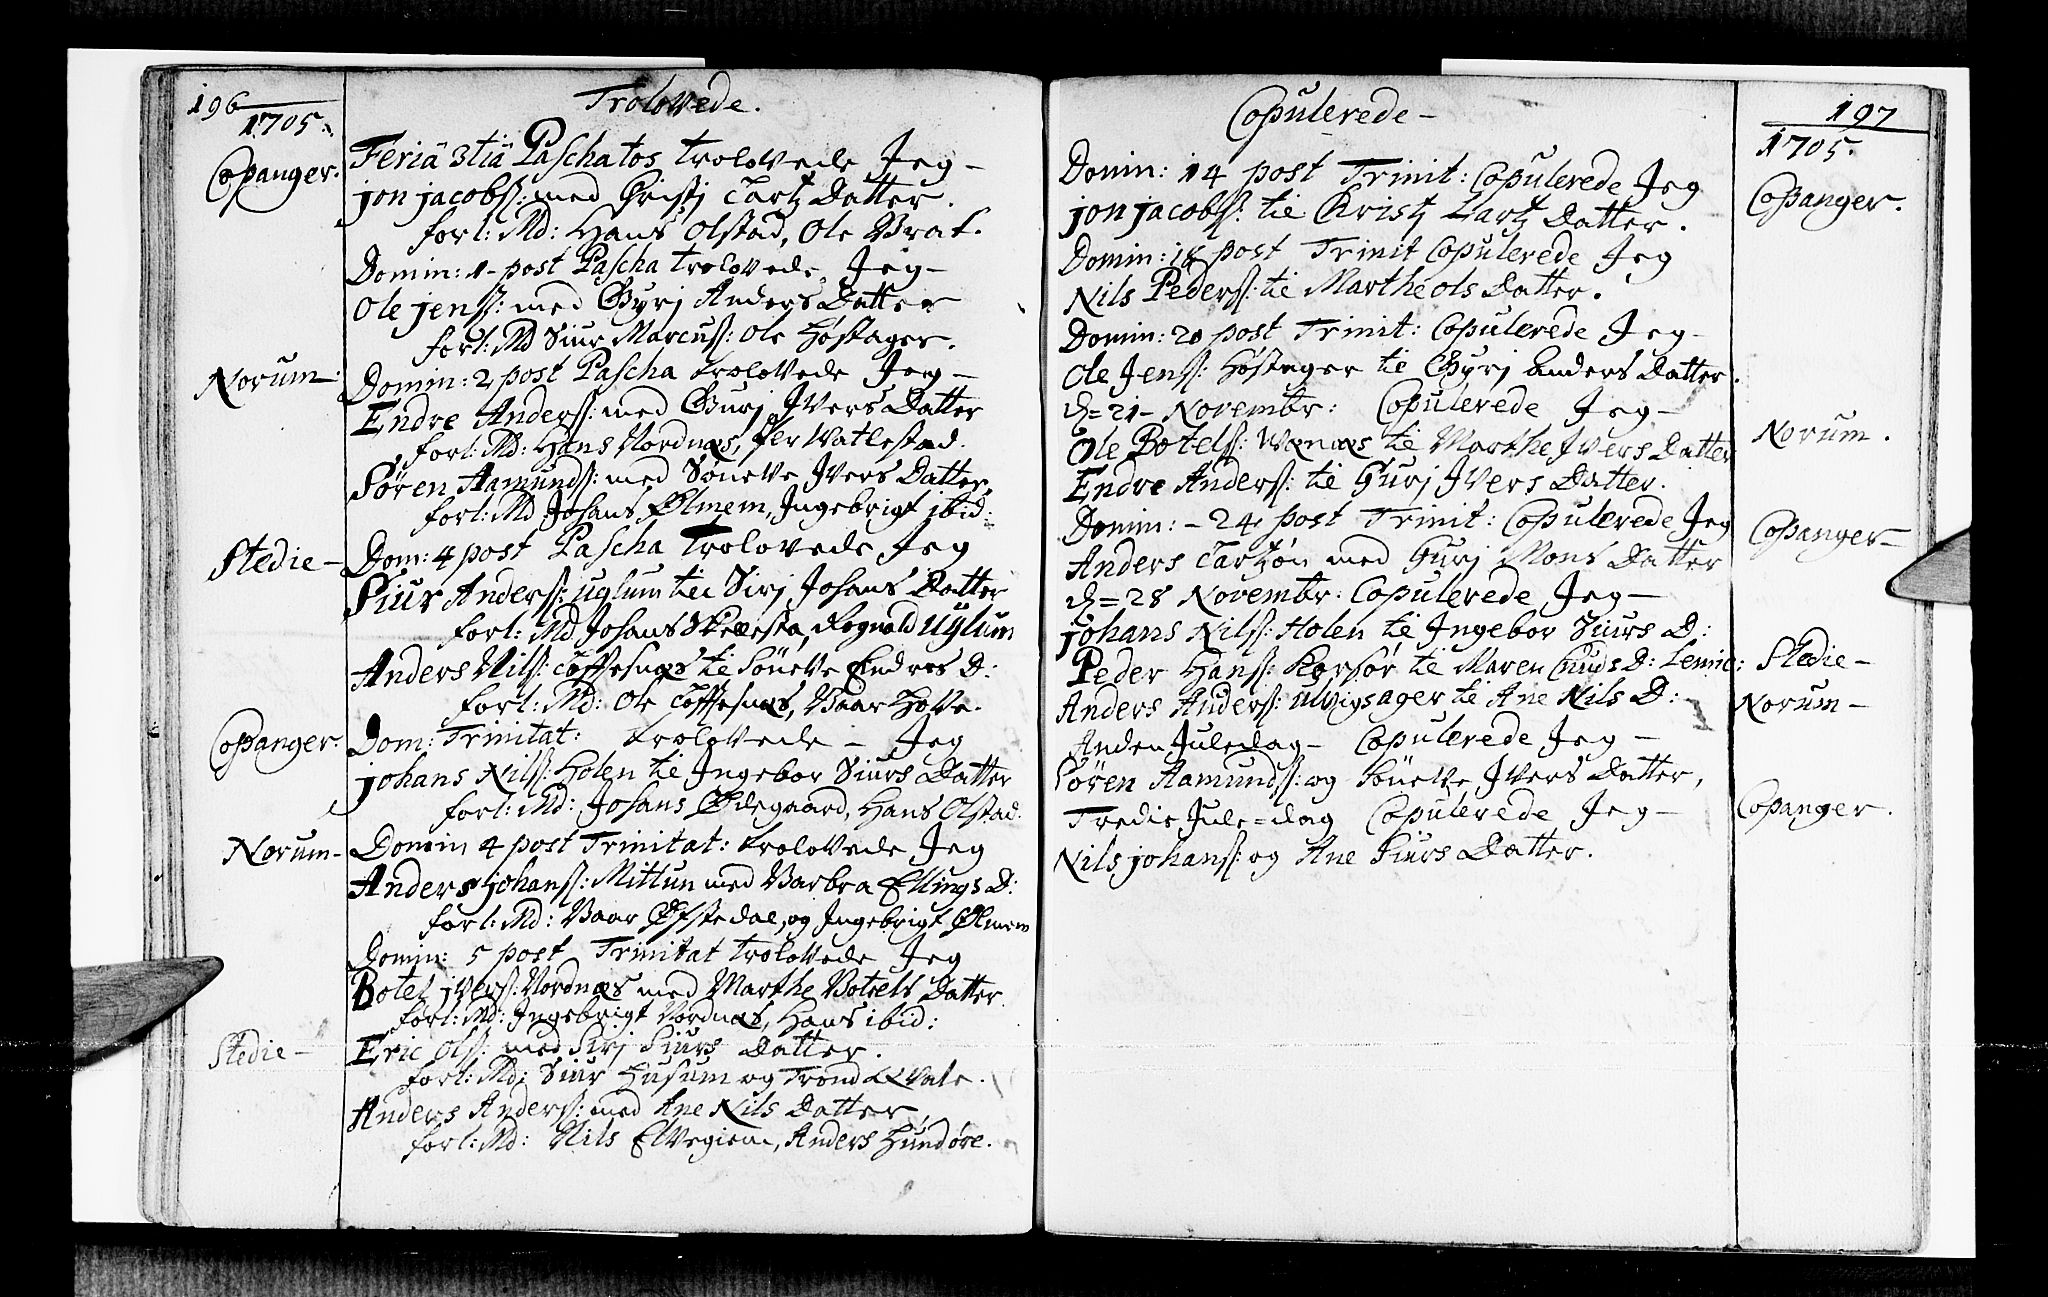 196
1705.
Trolovede.
Copanger.
Feriâ 3tiâ Paschatos trolovede Jeg –
jon jacobsß: med Christj Lartz Datter.
forl: Md: Hans Olstad, Ole Brat.
Domin: 1 – post Pascha trolovede Jeg –
Ole jensß: med Gyrj Anders Datter
forl: Md Siur Marcusß: Ole Høstager.
Norum –:
Domin: 2 post Pascha trolovede Jeg –
Endre Andersß: med Gurj Jvers Datter
forl: Md: Hans Nordnæs, Per Watlestad.
Sören Aamundsß: med Sönetve Jvers Datter,
forl: Md Johans Ølmem, Jngebrigt ibid:
Stedie –
Dom: 4 post Pascha Trolovede Jeg
Siur Andersß: Uglum til Sirj Johans Datter
forl: Md Johans Skiellesta, Rognald Uglum
Anders Nilsß: Loftesnæs til Sönetve Endres D:
forl: Md: Ole Loftesnæs, Baar Hove.
Copanger.
Dom: Trinitat: trolovede – Jeg
johans Nilsß: Holen til Jngebor Siurs Datter
forl: Md: Johans Ødegaard, Hans Olstad.
Norum –
Domin 4 post Trinitat: trolovede Jeg
Anders johansß: Mittun med Barbra Ellings D:
forl: Md: Baar Øfstedal, og Jngebrigt Ølmem
Domin: 5 post Trinitat trolovede Jeg
Botel jversß: Nordnæs med Marthe Botels Datter
forl: Md: Jngebrigt Nordnæs, Hans ibid:
Stedie –
Eric Olsß: med Sirj Siurs Datter.
forl: Md: Siur Husum og Trond Qvale.
Anders Andersß: med Ane Nils Datter,
forl: Md: Nils Elvegiem, Anders Hundøre.
197
1705.
Copulerede –
Domin: 14 post Trinit: Copulerede Jeg
Copanger.
jon jacobsß: til Christj Lartz Datter.
Domin: 18 post Trinit Copulerede Jeg
Nils Pedersß: til Marthe Ols Datter.
Domin: 20 post Trinit: Copulerede Jeg –
Ole Jensß: Høstager til Gyrj Anders Datter.
d = 21 – Novembr: Copulerede Jeg –
Norum.
Ole Botelsß: til Marthe Jvers Datter
Endre Andersß: til Gurj Jvers Datter.
Domin: – 24 post Trinit: Copulerede Jeg
Copanger –
Anders Lartzön med Gurj Mons Datter
d = 28 Novembr: Copulerede Jeg –
johans Nilsß: Holen til Jngebor Siurs D:
Peder Hansß: Korsör til Maren Cnuds D:
Stedie –
Anders Andersß: Ulvigsager til Ane Nils D:
Norum –
Anden Juledag – Copulerede Jeg –
Sören Aamundsß: og Sönetve Jvers Datter,
Tredie Jule=dag Copulerede Jeg –
Copanger.
Nils johansß: og Ane Siurs Datter.